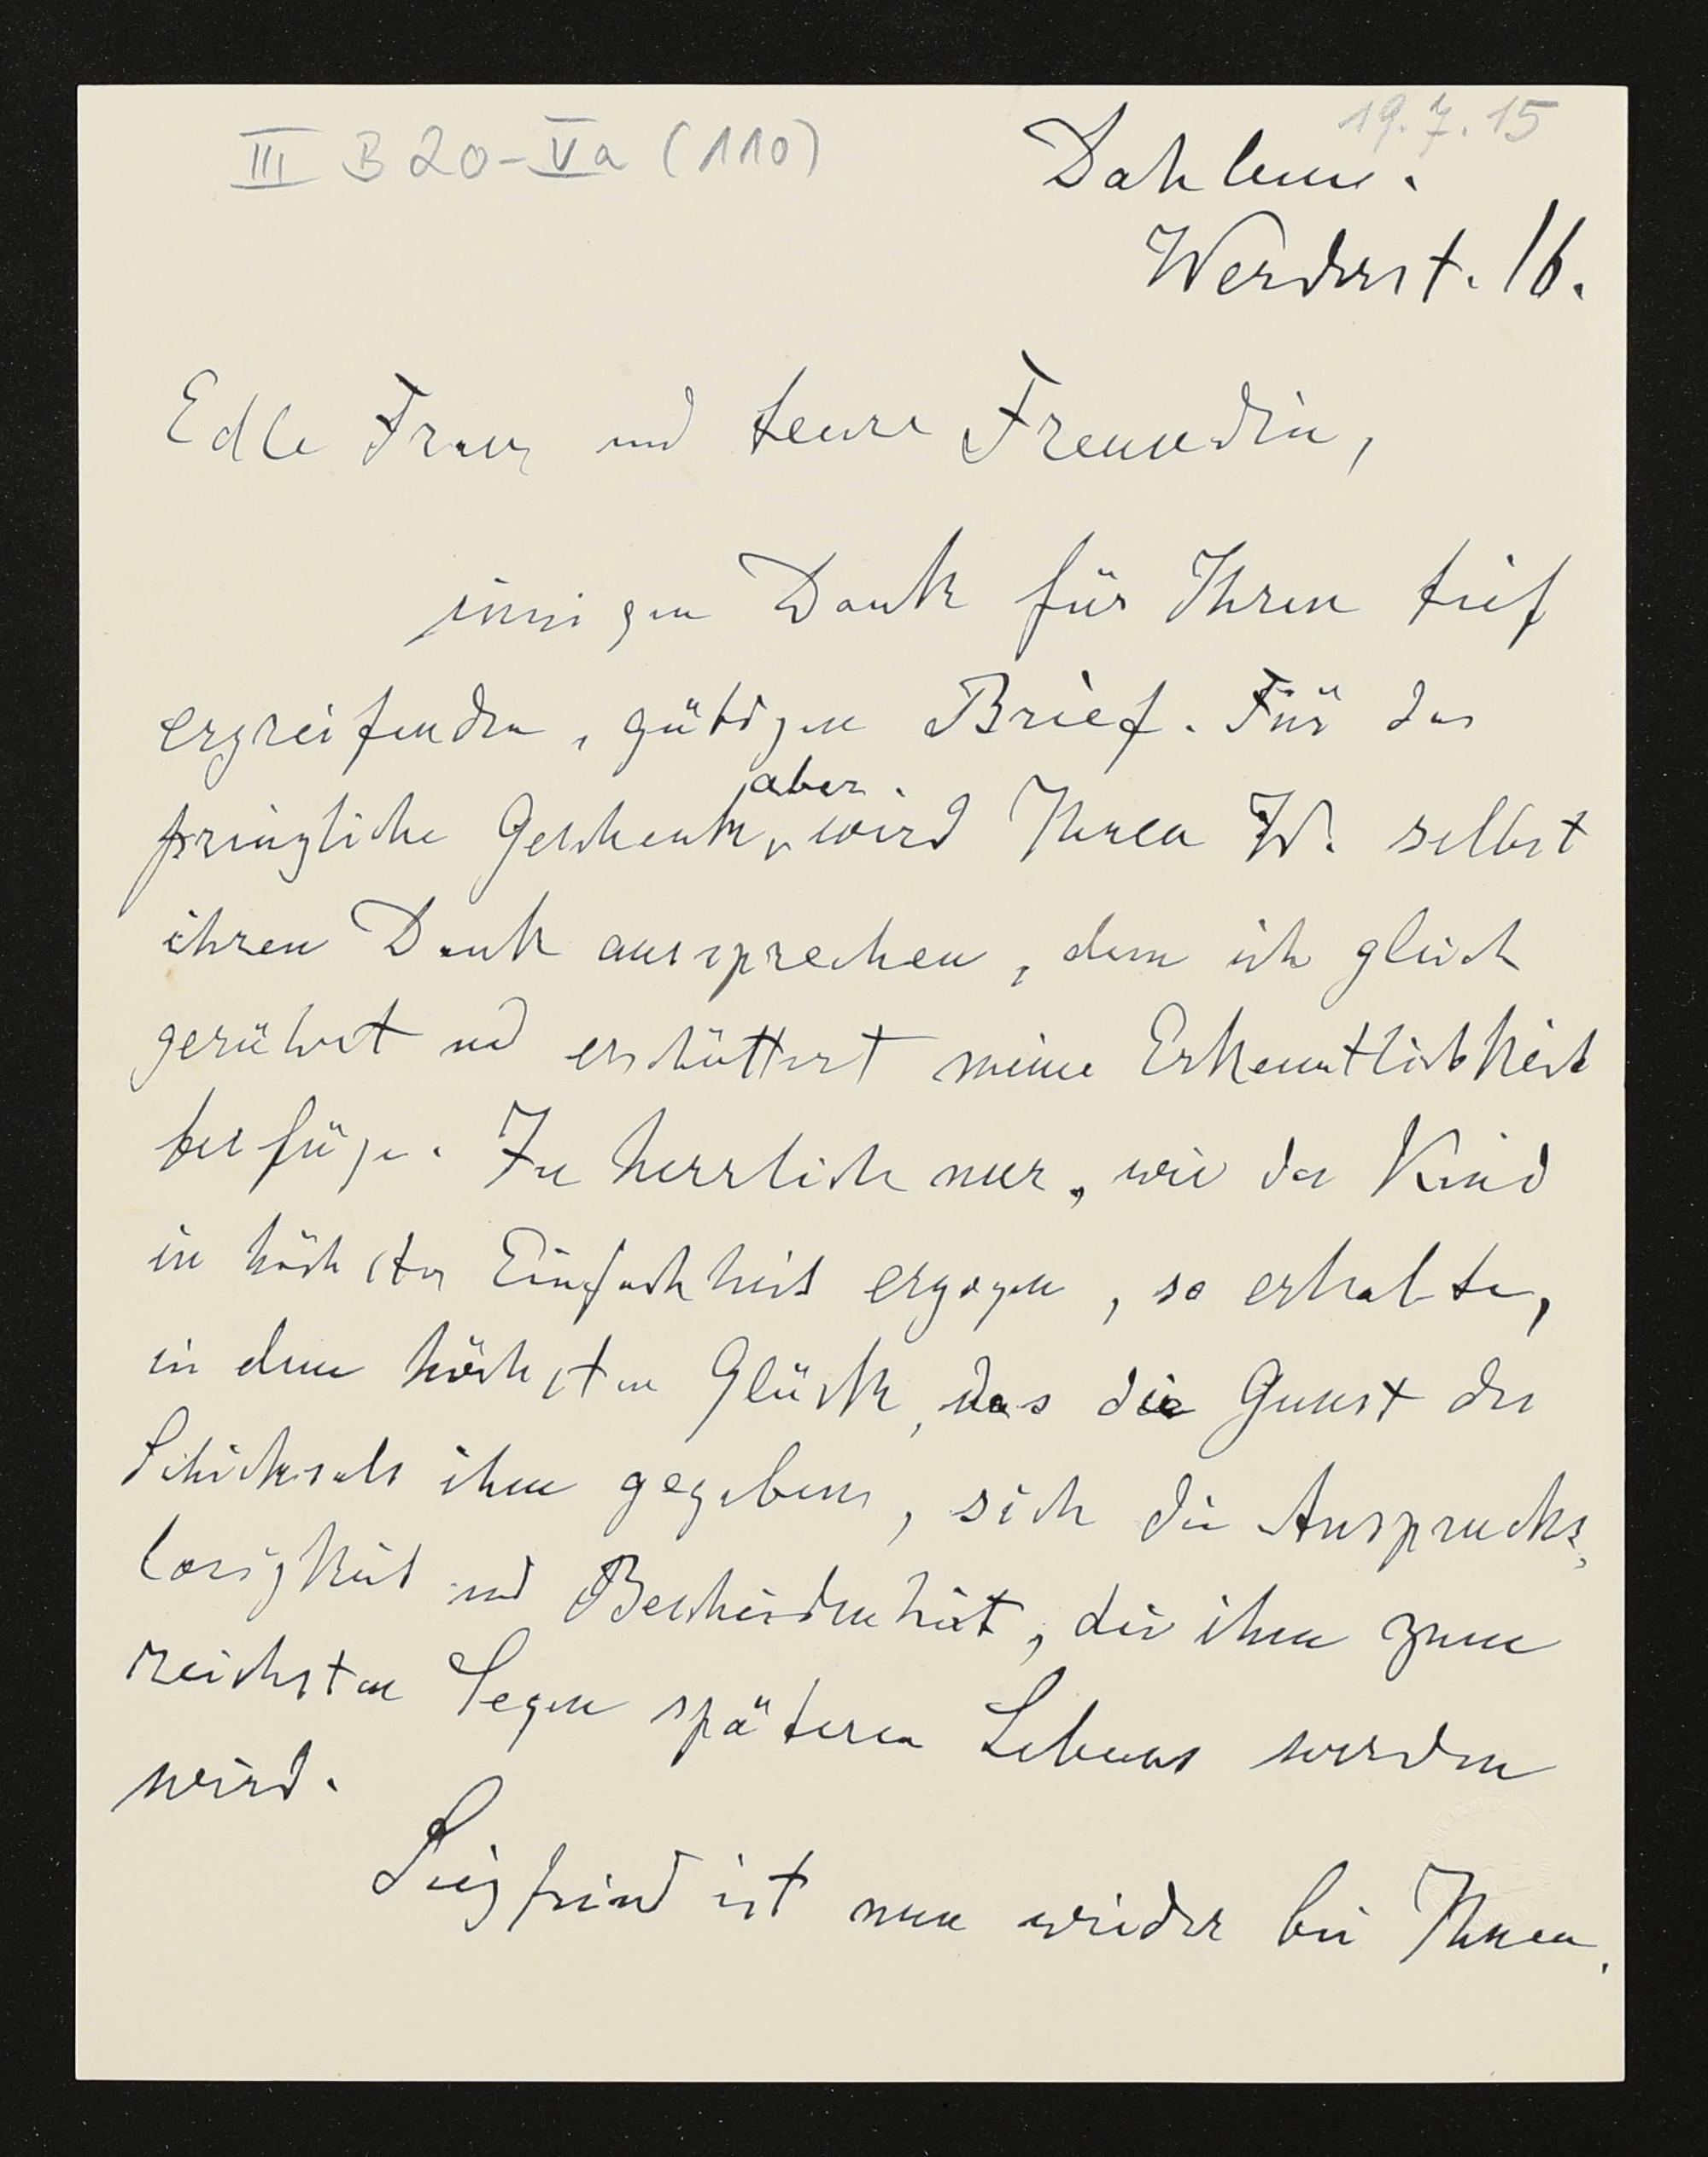 III B 20-Va (110)
19.7.15
Dahlem.
Werderst. 16.
Edle Frau und teure Freundin,
innigen Dank für Ihren tief
ergreifenden, gütigen Brief. Für das
prinzliche Geschenk aber wird Ihnen W. selbst
ihren Dank aussprechen, dem ich gleich
gerührt und erschüttert meine Erkenntlichkeit
beifüge. Zu herrlich nur, wie das Kind
in höchster Einfachheit erzogen, so erhalten,
in dem höchsten Glück, das die Gunst des
Schicksals ihm gegeben, sich die Anspruchs-
losigkeit und Bescheidenheit, die ihm zum
reichsten Segen späteren Lebens werden
wird.
Siegfried ist nun wieder bei Ihnen,